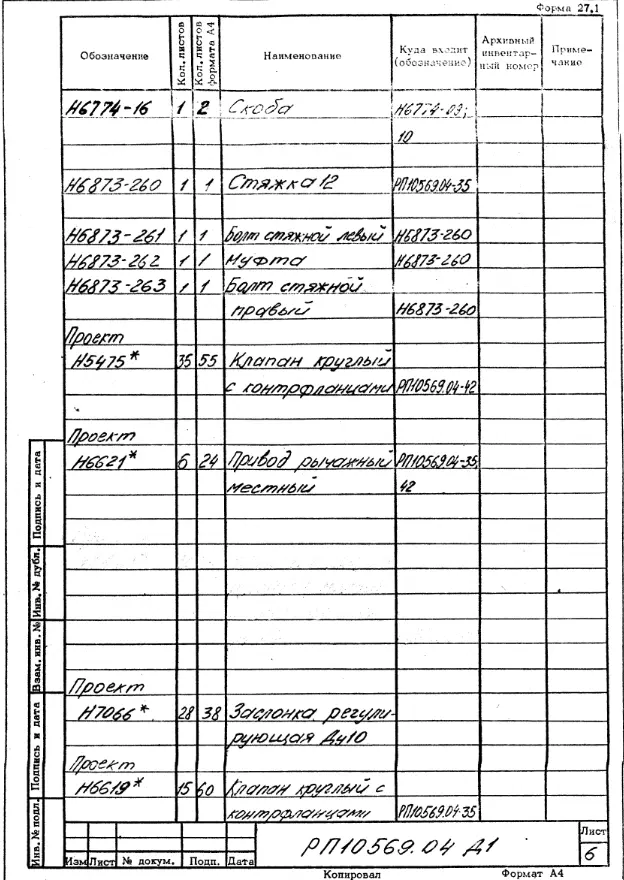 Форма 27.1
Обозначение Кол. листов Кол. листов формата А4 Наименование Куда входит (обозначение) Архивный инвентарный номер Примечание
Н6774-16 1 2 Скоба Н6774-09;
10
Н6873-260 1 1 Стяжка 12 РП10569.04-35
Н6873-261 1 1 Болт стяжной левый Н6873-260
Н6873-262 1 1 Муфта Н6873-260
Н6873-263 1 1 Болт стяжной
правый Н6873-260
Проект
Н5475* 35 55 Клапан круглый
с контрфланцами РП10569.04-42
Проект
Н6621* 6 24 Привод рычажный РП10569.04-35,
местный 42
Проект
Н7066* 28 38 Заслонка регули-
рующая Ду10
Проект
Н6619* 15 60 Клапан круглый с
контрфланцами РП10569.04-35
Подпись и дата
Инв. № дубл.
Взам. инв. №
Подпись и дата
Инв. № подл.
РП10569.04 Д1
Лист
6
Изм Лист № докум. Подп. Дата
Копировал Формат А4